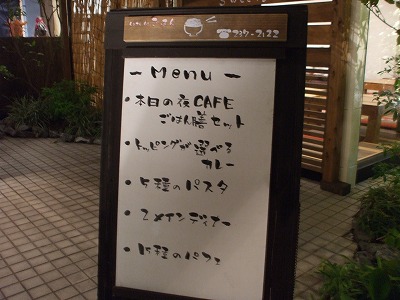 ☎237-2122
— Menu —
・本日の夜CAFE
ごはん膳セット
・トッピングが選べる
カレー
・5種のパスタ
・2メインディナー
・15種のパフェ